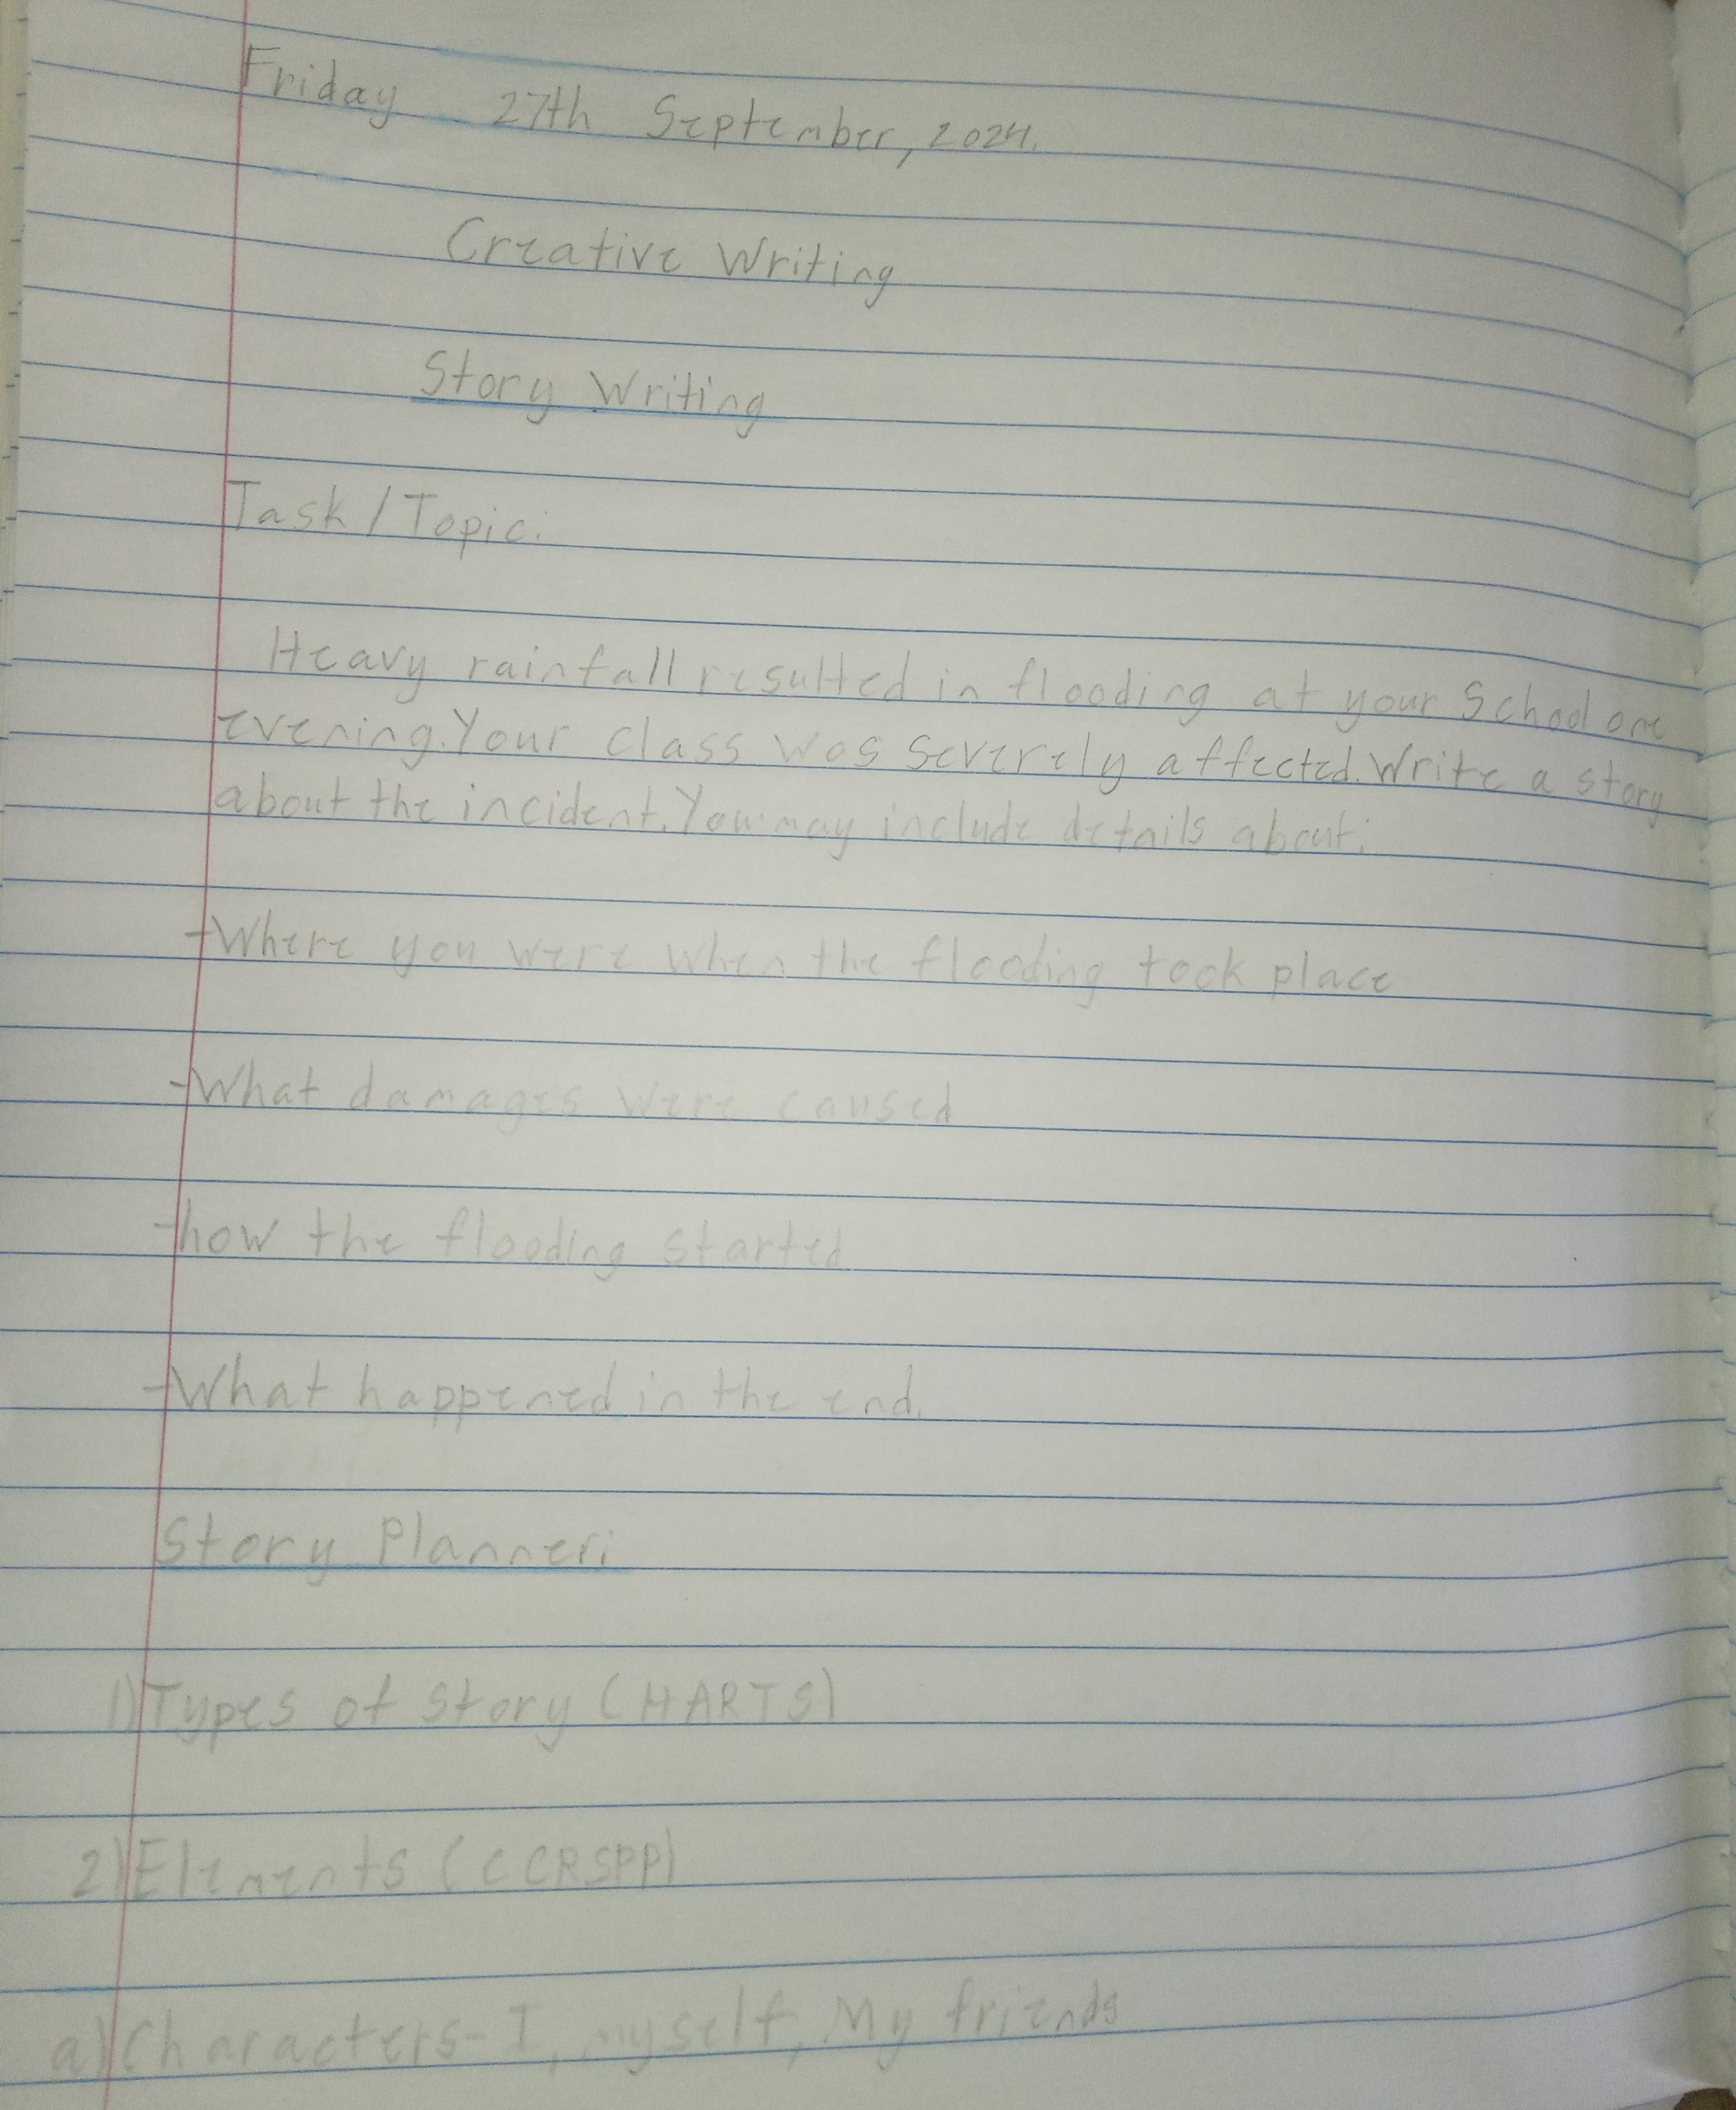 Friday 27th September, 2024.
Creative Writing
Story Writing
Task/Topic:
Heavy rainfall resulted in flooding at your School one
evening. Your class was severely affected. Write a story
about the incident. You may include details about:
-Where you were when the flooding took place
-What damages were caused
-how the flooding started
-What happened in the end.
Story Planner:
1) Types of story (HARTS)
2) Elements (CCRSPP)
a) Characters - I, myself, My friends